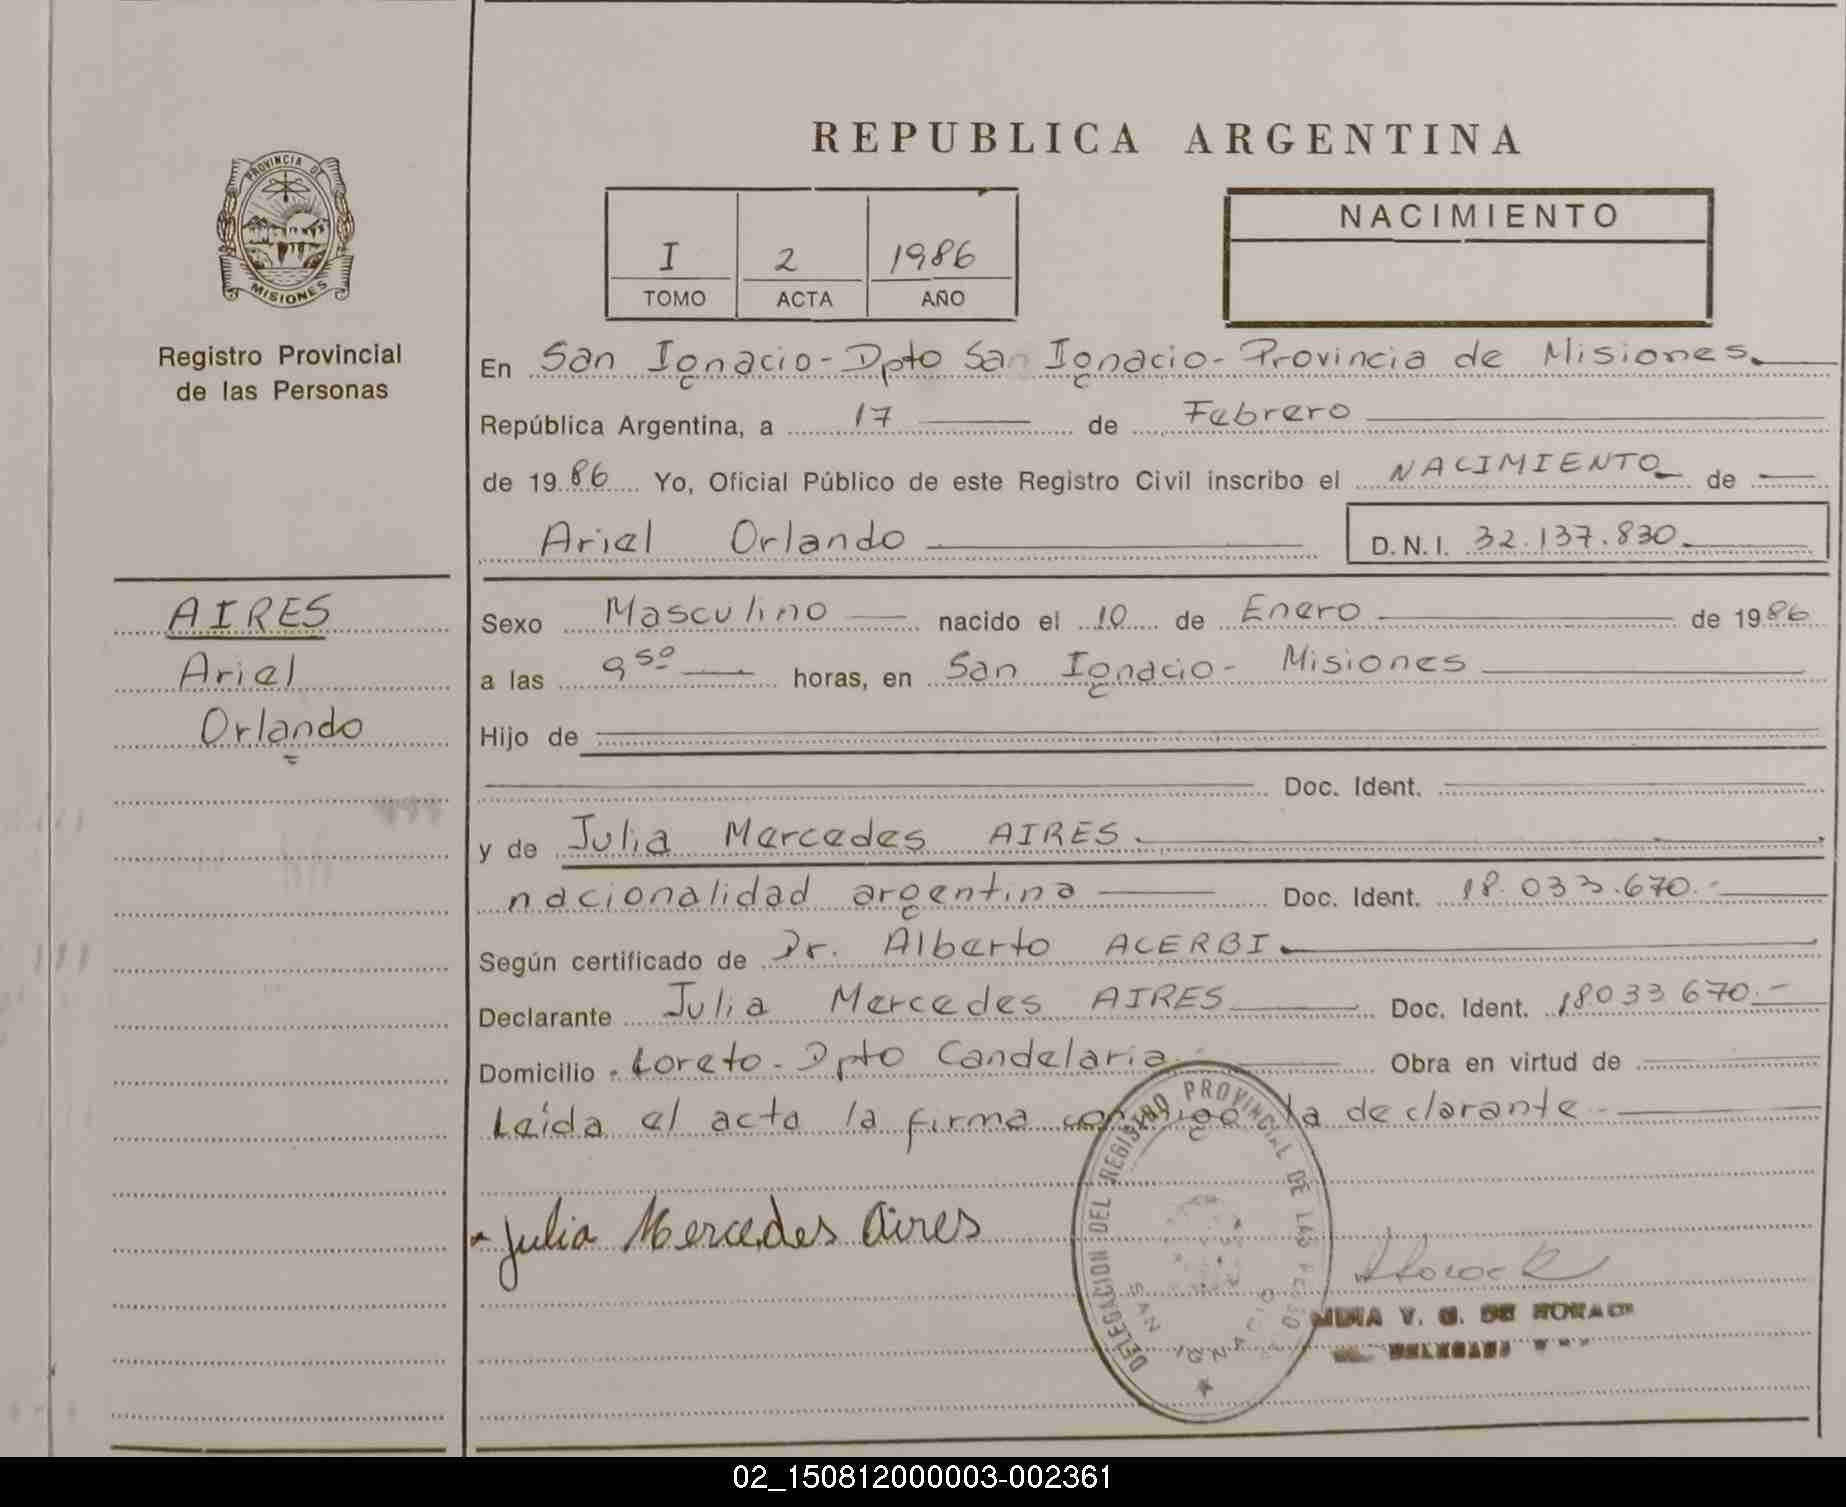 PROVINCIA DE
MISIONES
Registro Provincial
de las Personas
AIRES
Ariel
Orlando
REPUBLICA ARGENTINA
I 2 1986
TOMO ACTA AÑO
NACIMIENTO
En San Ignacio - Dpto San Ignacio - Provincia de Misiones
República Argentina, a 17 de Febrero
de 1986 Yo, Oficial Público de este Registro Civil inscribo el NACIMIENTO de
Ariel Orlando D.N.I. 32.137.830
Sexo Masculino nacido el 10 de Enero de 1986
a las 9 50 horas, en San Ignacio - Misiones
Hijo de
Doc. Ident.
y de Julia Mercedes AIRES
nacionalidad argentina Doc. Ident. 18.033.670.-
Según certificado de Dr. Alberto ACERBI
Declarante Julia Mercedes AIRES Doc. Ident. 18033670.-
Domicilio Loreto - Dpto Candelaria Obra en virtud de
Leída el acta la firma conmigo la declarante
Julia Mercedes Aires
DELEGACION DEL REGISTRO PROVINCIAL DE LAS
SAN IGNACIO
V. G. DE
02_150812000003-002361